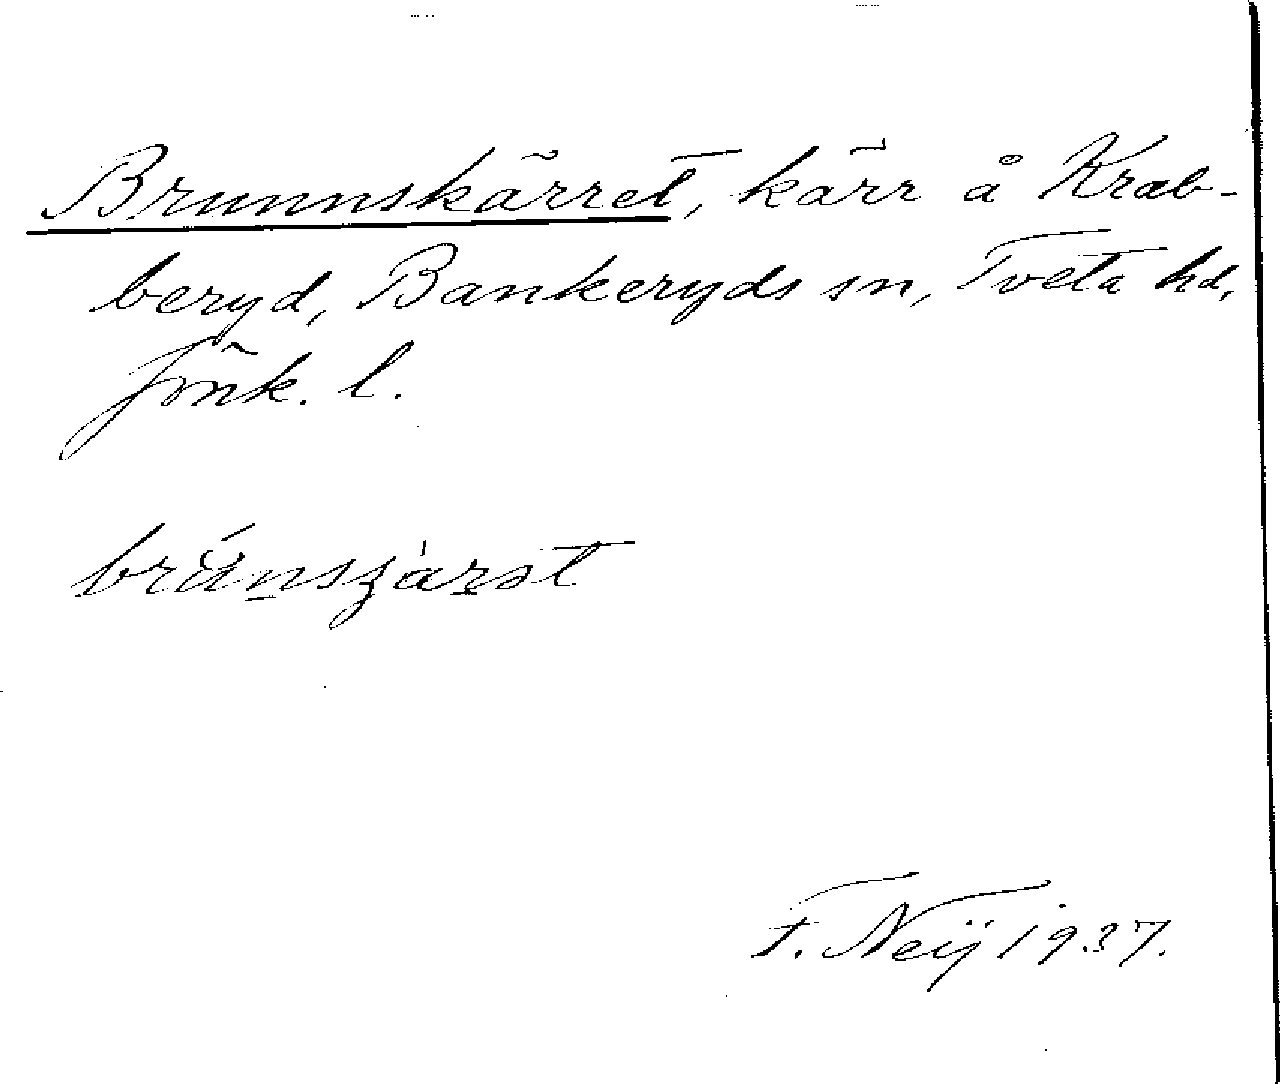 Brunnskärret, kärr å Krab-
beryd, Bankeryds sn, Tveta hd,
Jönk. l.
F. Neij 1937.